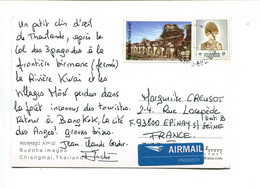 Un petit clin d'œil
de Thaïlande, après le
Col des 3 pagodes à la
frontière birmane (fermé)
la Rivière Kwaï et les
Villages Môn perdus dans
la forêt inconnus des touristes
retour à BANGKOK, la cité
des Anges! grosses bises
Jean-Claude
Buddha images
Chiangmai, Thailand
Marguerite CREUSOT
2-4 Rue
bat B
F. 93800 EPINAY S/ SEINE
FRANCE
AIRMAIL